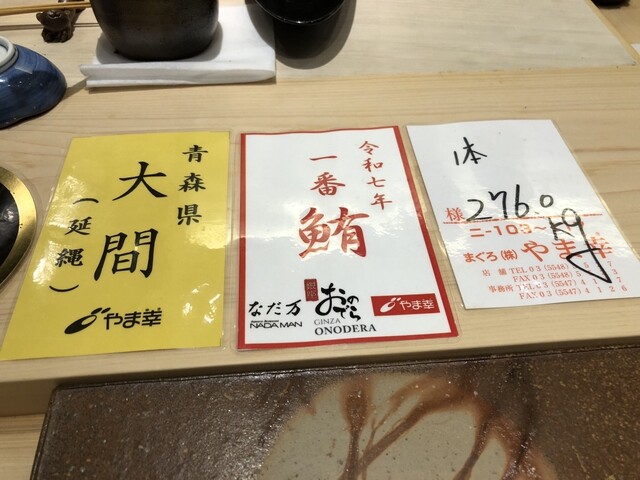 青森県
大間
(延縄)
やま幸
令和七年
一番
鮪
なだ万
NADAMAN
銀座
おのでら
GINZA
ONODERA
やま幸
1本
276.0
kg
様
ニ-103~
まぐろ(株)やま幸
店舗 TEL 03(5548)
FAX 03(5548)
事務所 TEL 03(5547)4
FAX 03(5547)4126